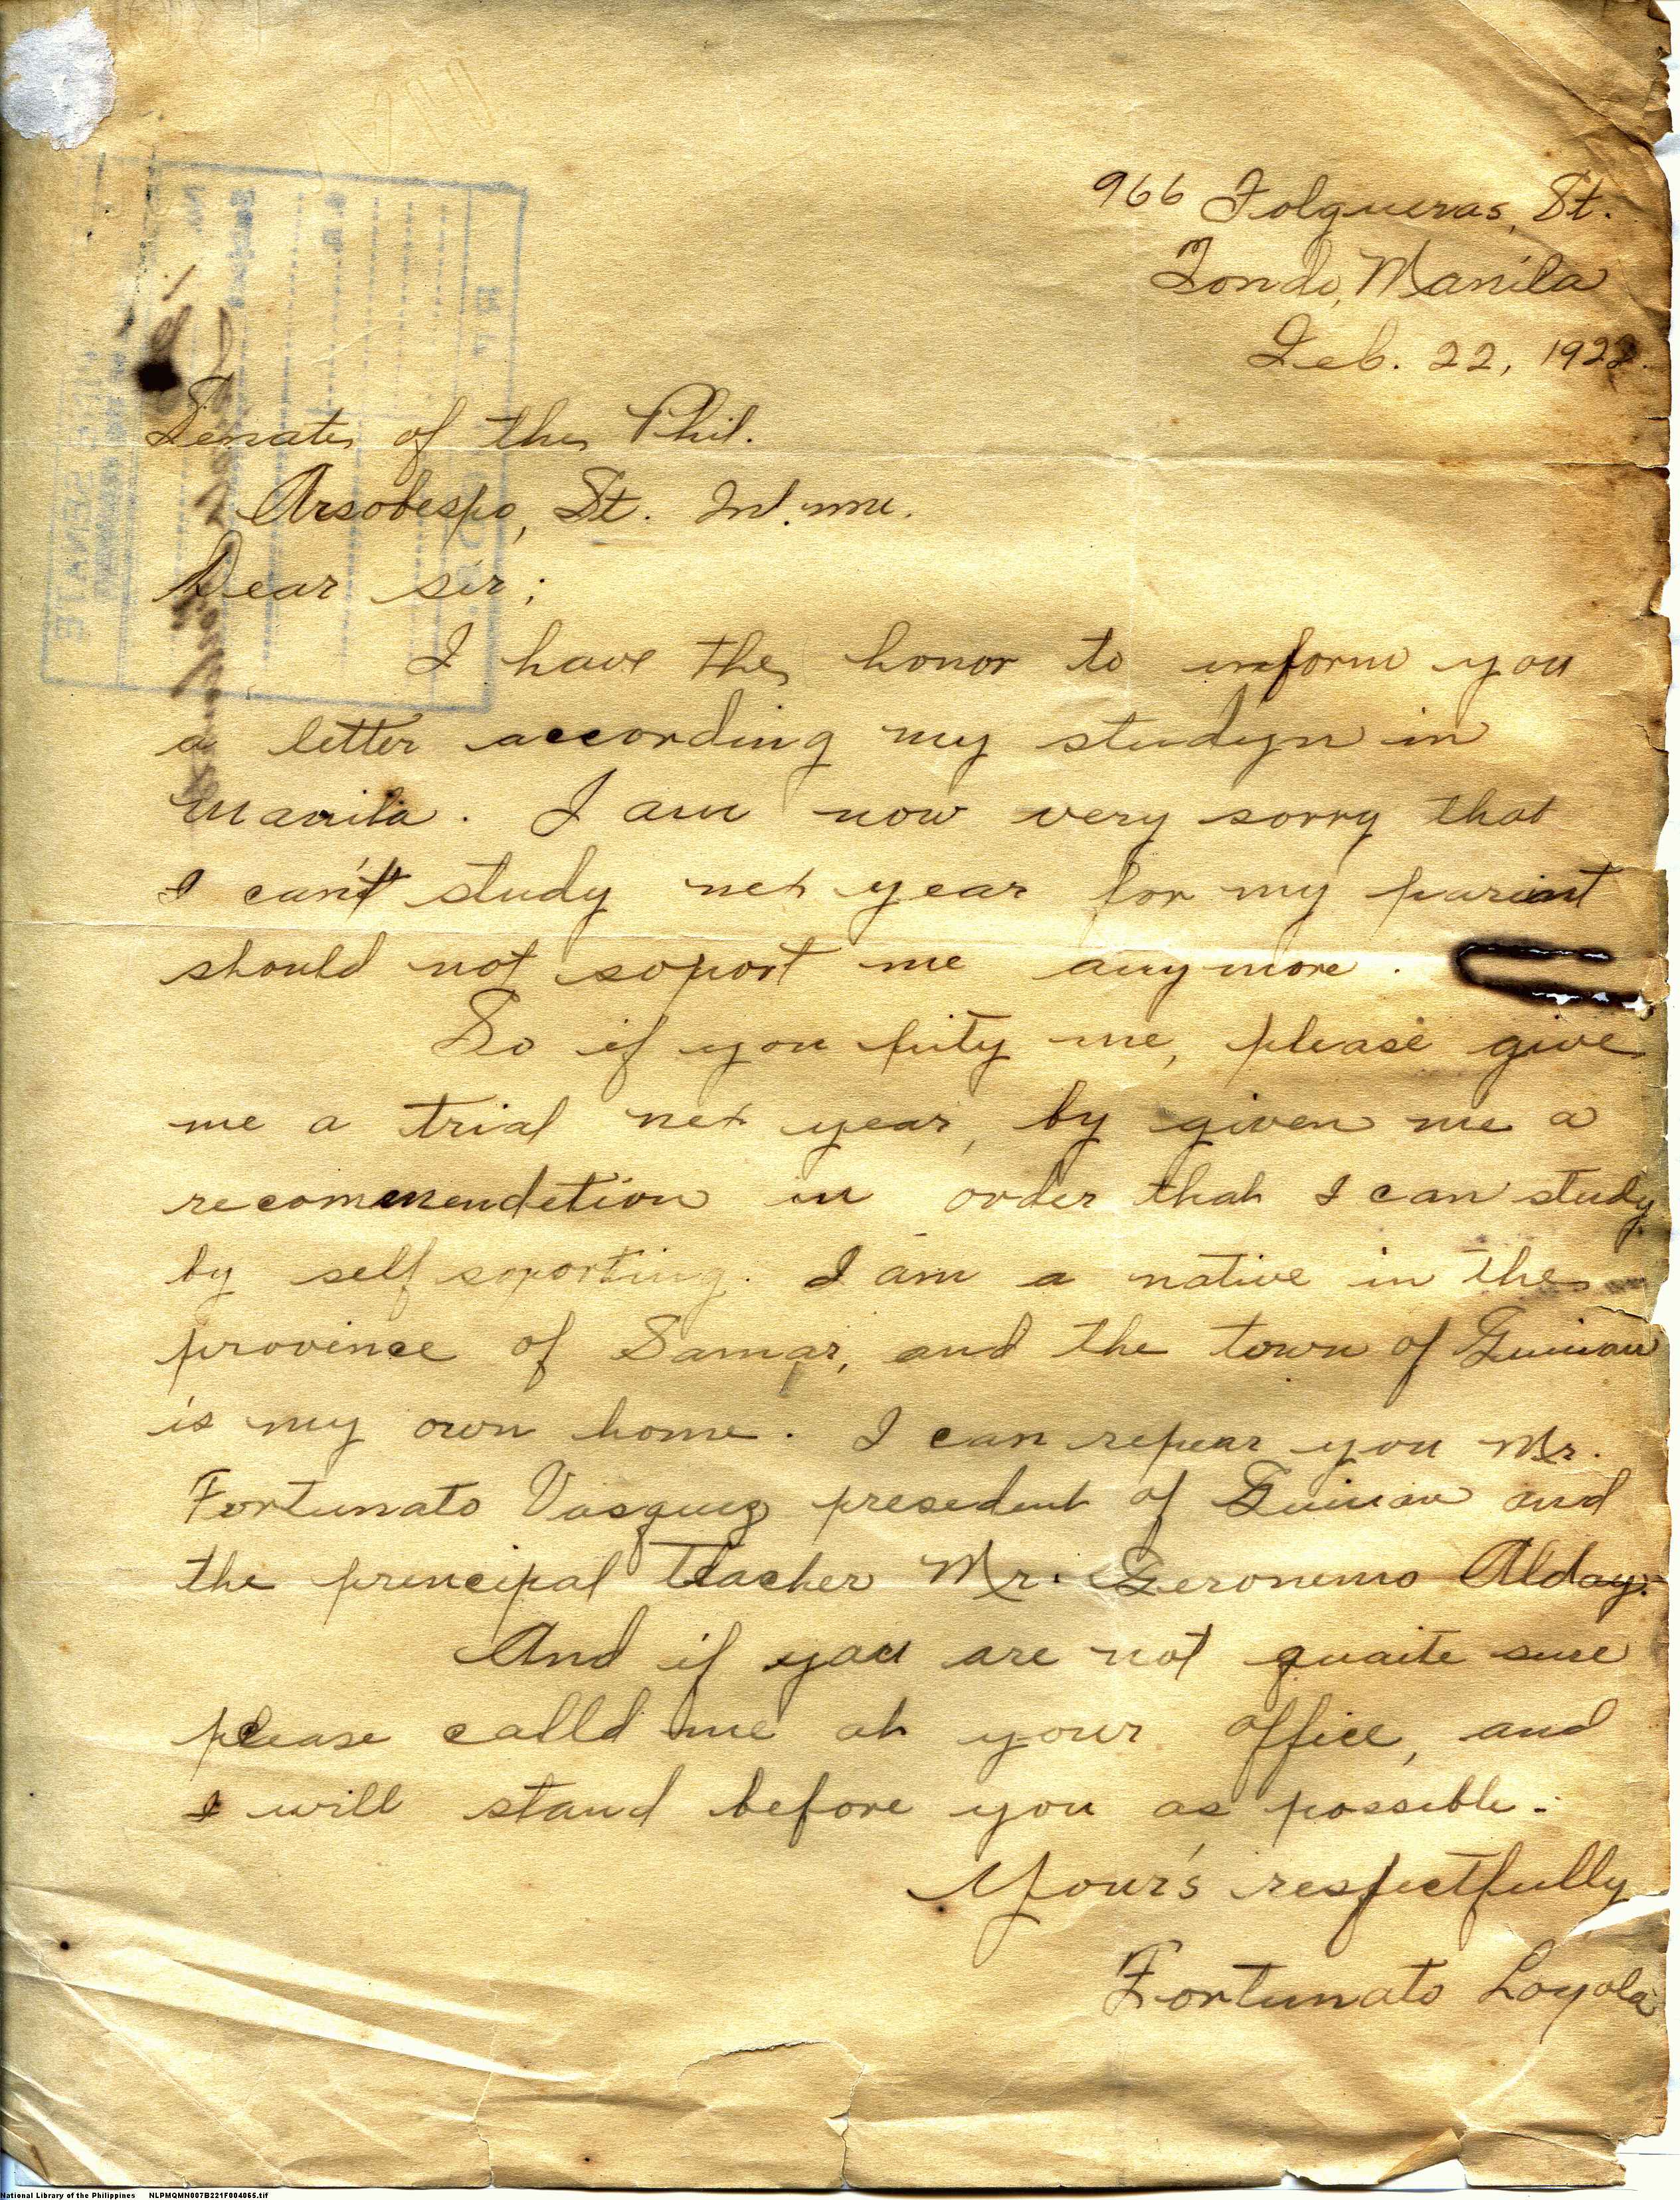 966 Folgueras, St.
Tondo, Manila
Feb. 22, 1922.
Senate of the Phil.
Arsobespo, St.
Dear sir;
I have the honor to inform you
a letter according my studyn in
manila. I am now very sorry that
I can't study next year for my parient
should not soport me anymore.
So if you pity me, please give
me a trial next year, by given me a
recommendetion in order that I can study
by self soporting. I am a native in the
province of Samar, and the town of Guiuan
is my own home. I can repear you Mr.
Fortunato Vasquez presedent of Guiuan and
the prencipal teacher Mr. Geronemo Alday.
And if you are not quaite sure
please calld me at your office, and
I will stand before you as possible.
Your's respectfully
Fortunato Loyola
National Library of the Philippines NLPMQMN007B221F004065.tif